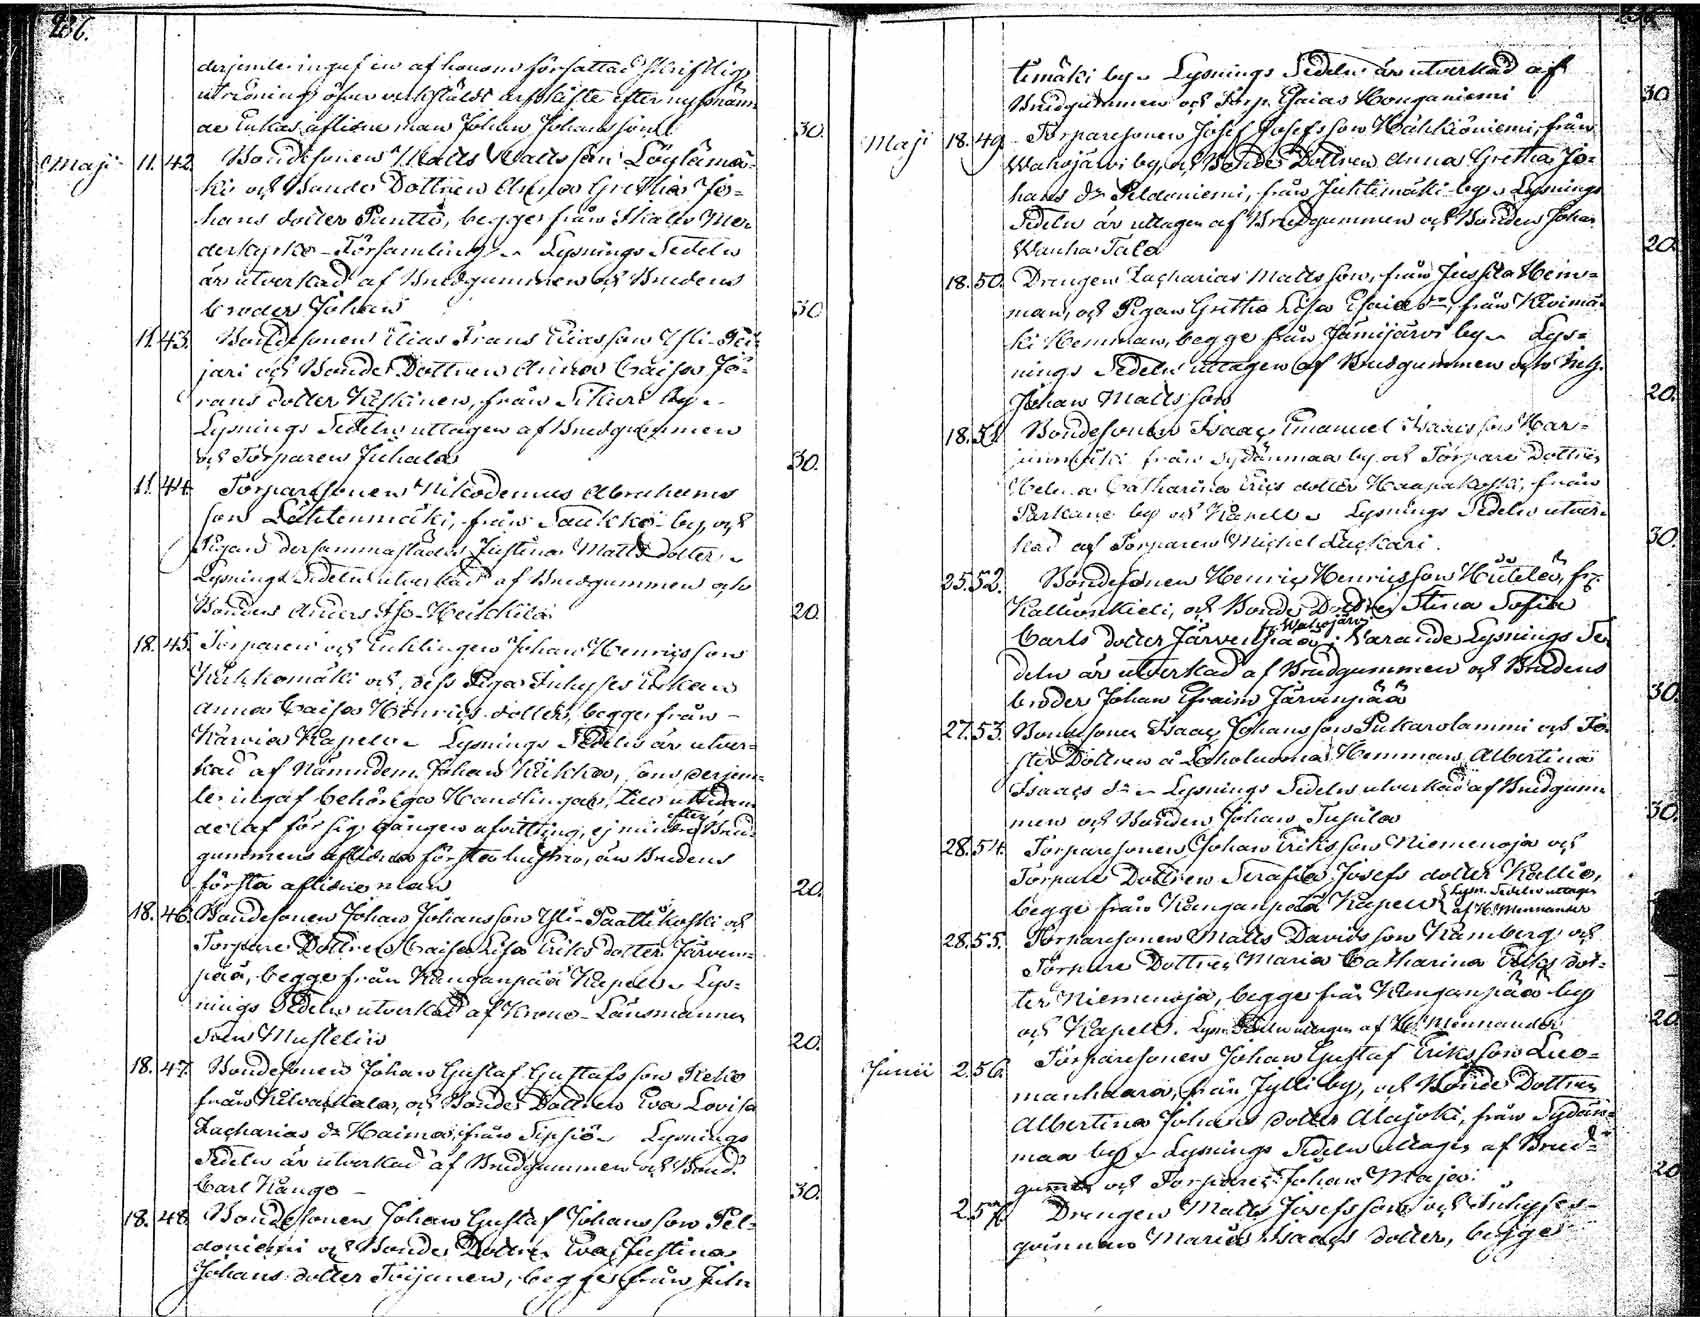 236.
derjemte ingaf en af honom författad skriftlig
utredning öfver verkstäldt arfskifte efter nyssnämn
de Enkas aflidne man Johan Johansson
30.
Maji 11. 42. Bondesonen Matts Mattsson Löylämä-
ki och Bonde Dottren Anna Gretha Jo-
hans dotter Punttu, begge från
derkyrko-Församling. Lysnings Sedeln
är utverkad af Brudgummen och Brudens
broder Johan
30
11. 43. Bondesonen Elias Frans Eliasson Yli-Pei-
jari och Bonde Dottren Anna Caisa Jö-
rans dotter Keskinen, från Sikuri by.
Lysnings Sedeln uttagen af Brudgummen
och Torparen Juhala
30.
11. 44. Torparesonen Nikodemus Abrahams
son Lähtenmäki, från Taukko by, och
Pigan dersammastädes Justina Matts dotter.
Lysnings Sedeln utverkad af Brudgummen och
Bonden Anders Iso-Heikkilä
20.
18. 45. Torparen och Enklingen Johan Henricsson
Kirkkomäki och dess Piga Inhyses Enkan
Anna Caisa Henrics dotter, begge från
Karvia Kapell. Lysnings Sedeln är utver-
kad af Nämndem. Johan Kirkko, som derjem-
te ingaf behöriga Handlingar,
del af för sig gången afvittring, ej mindre efter Brud-
gummens aflidna första hustru, än Brudens
första aflidne man
20.
18. 46. Bondesonen Johan Johansson Yli-Paattikoski och
Torpare Dottren Caisa Lisa Eriks dotter Järven-
pää, begge från Kanganpää Kapell. Lys-
nings Sedeln utverkad af Krono-Länsmannen
Sven Mustelin
20.
18. 47. Bondesonen Johan Gustaf Gustafsson Keko
från Kilvakkala, och Bonde Dottren Eva Lovisa
Zacharias dr Haimoo, från Sipsiö. Lysnings
Sedeln är utverkad af Brudgummen och Bond.
Carl Kango
30.
18. 48. Bondesonen Johan Gustaf Johansson Pel-
doniemi och Bonde Dottren Eva Justina
Johans dotter Toijanen, begge från Juh-
timäki by. Lysnings Sedeln är utverkad af
Brudgummen och Torp. Esaias Honganiemi
30
Maji 18. 49. Torparesonen Josef Josefsson Hähkiöniemi, från
Wahojärvi by, och Bonde Dottren Anna Gretha Jo-
hans dr Peldoniemi, från Juhtimäki by. Lysnings
Sedeln är uttagen af Brudgummen och Bonden Johan
Wanha-Tala
20.
18. 50. Drengen Zacharias Mattsson, från Jussila Hem-
man, och Pigan Gretha Lisa Esaiæ dr, från Kivimä-
ki Hemman, begge från Jämijärvi by. Lys-
nings Sedeln uttagen af Brudgummen och
Johan Mattsson
20.
18. 51. Bondesonen Isaac Emanuel Isacsson Har-
junmäki från Sydänmaa by, och Torpare Dottren
Helena Catharina Erics dotter Haapakoski, från
Parkano by och Kapell. Lysnings Sedeln utver-
kad af Torparen Michel Luckari.
30.
25. 52. Bondesonen Henric Henricsson Hütelä, fr.
Kallionkieli, och Bonde Dottren Stina Sofia
Carls dotter Järvenpää fr. Wahojärvi; Varande Lysnings Se
deln är utverkad af Brudgummen och Brudens
broder Johan Efraim Järvenpää
30.
27. 53. Bondesonen Isaac Johansson Pukarolammi och Fo-
ster Dottren å Laholuoma Hemman Albertina
Isaacs dr. Lysnings Sedeln utverkad af Brudgum-
men och Bonden Johan Tupila
30.
28. 54. Torparesonen Johan Eriksson Niemenoja och
Torpare Dottren Serafia Josefs dotter Kallio,
begge från Kanganpää Kapell. Lysn. Sedeln uttagen
af H. Mennander
28. 55. Torparesonen Matts Davidsson Kamberg och
Torpare Dottren Maria Catharina Eriks dot-
ter Niemenoja, begge från Kanganpää by
och Kapell. Lysn. Sedeln uttagen af H. Mennander
20
Junii 2. 56. Torparesonen Johan Gustaf Eriksson Luo-
manhaara, från Jylli by, och Bonde Dottren
Albertina Johans dotter Alajoki, från Sydän-
maa by. Lysnings Sedeln uttagen af Brud-
gumen och Torparen Johan Maja.
20
2. 57. Drengen Matts Josefsson och Inhyses-
qvinnan Maria Isaacs dotter, begge